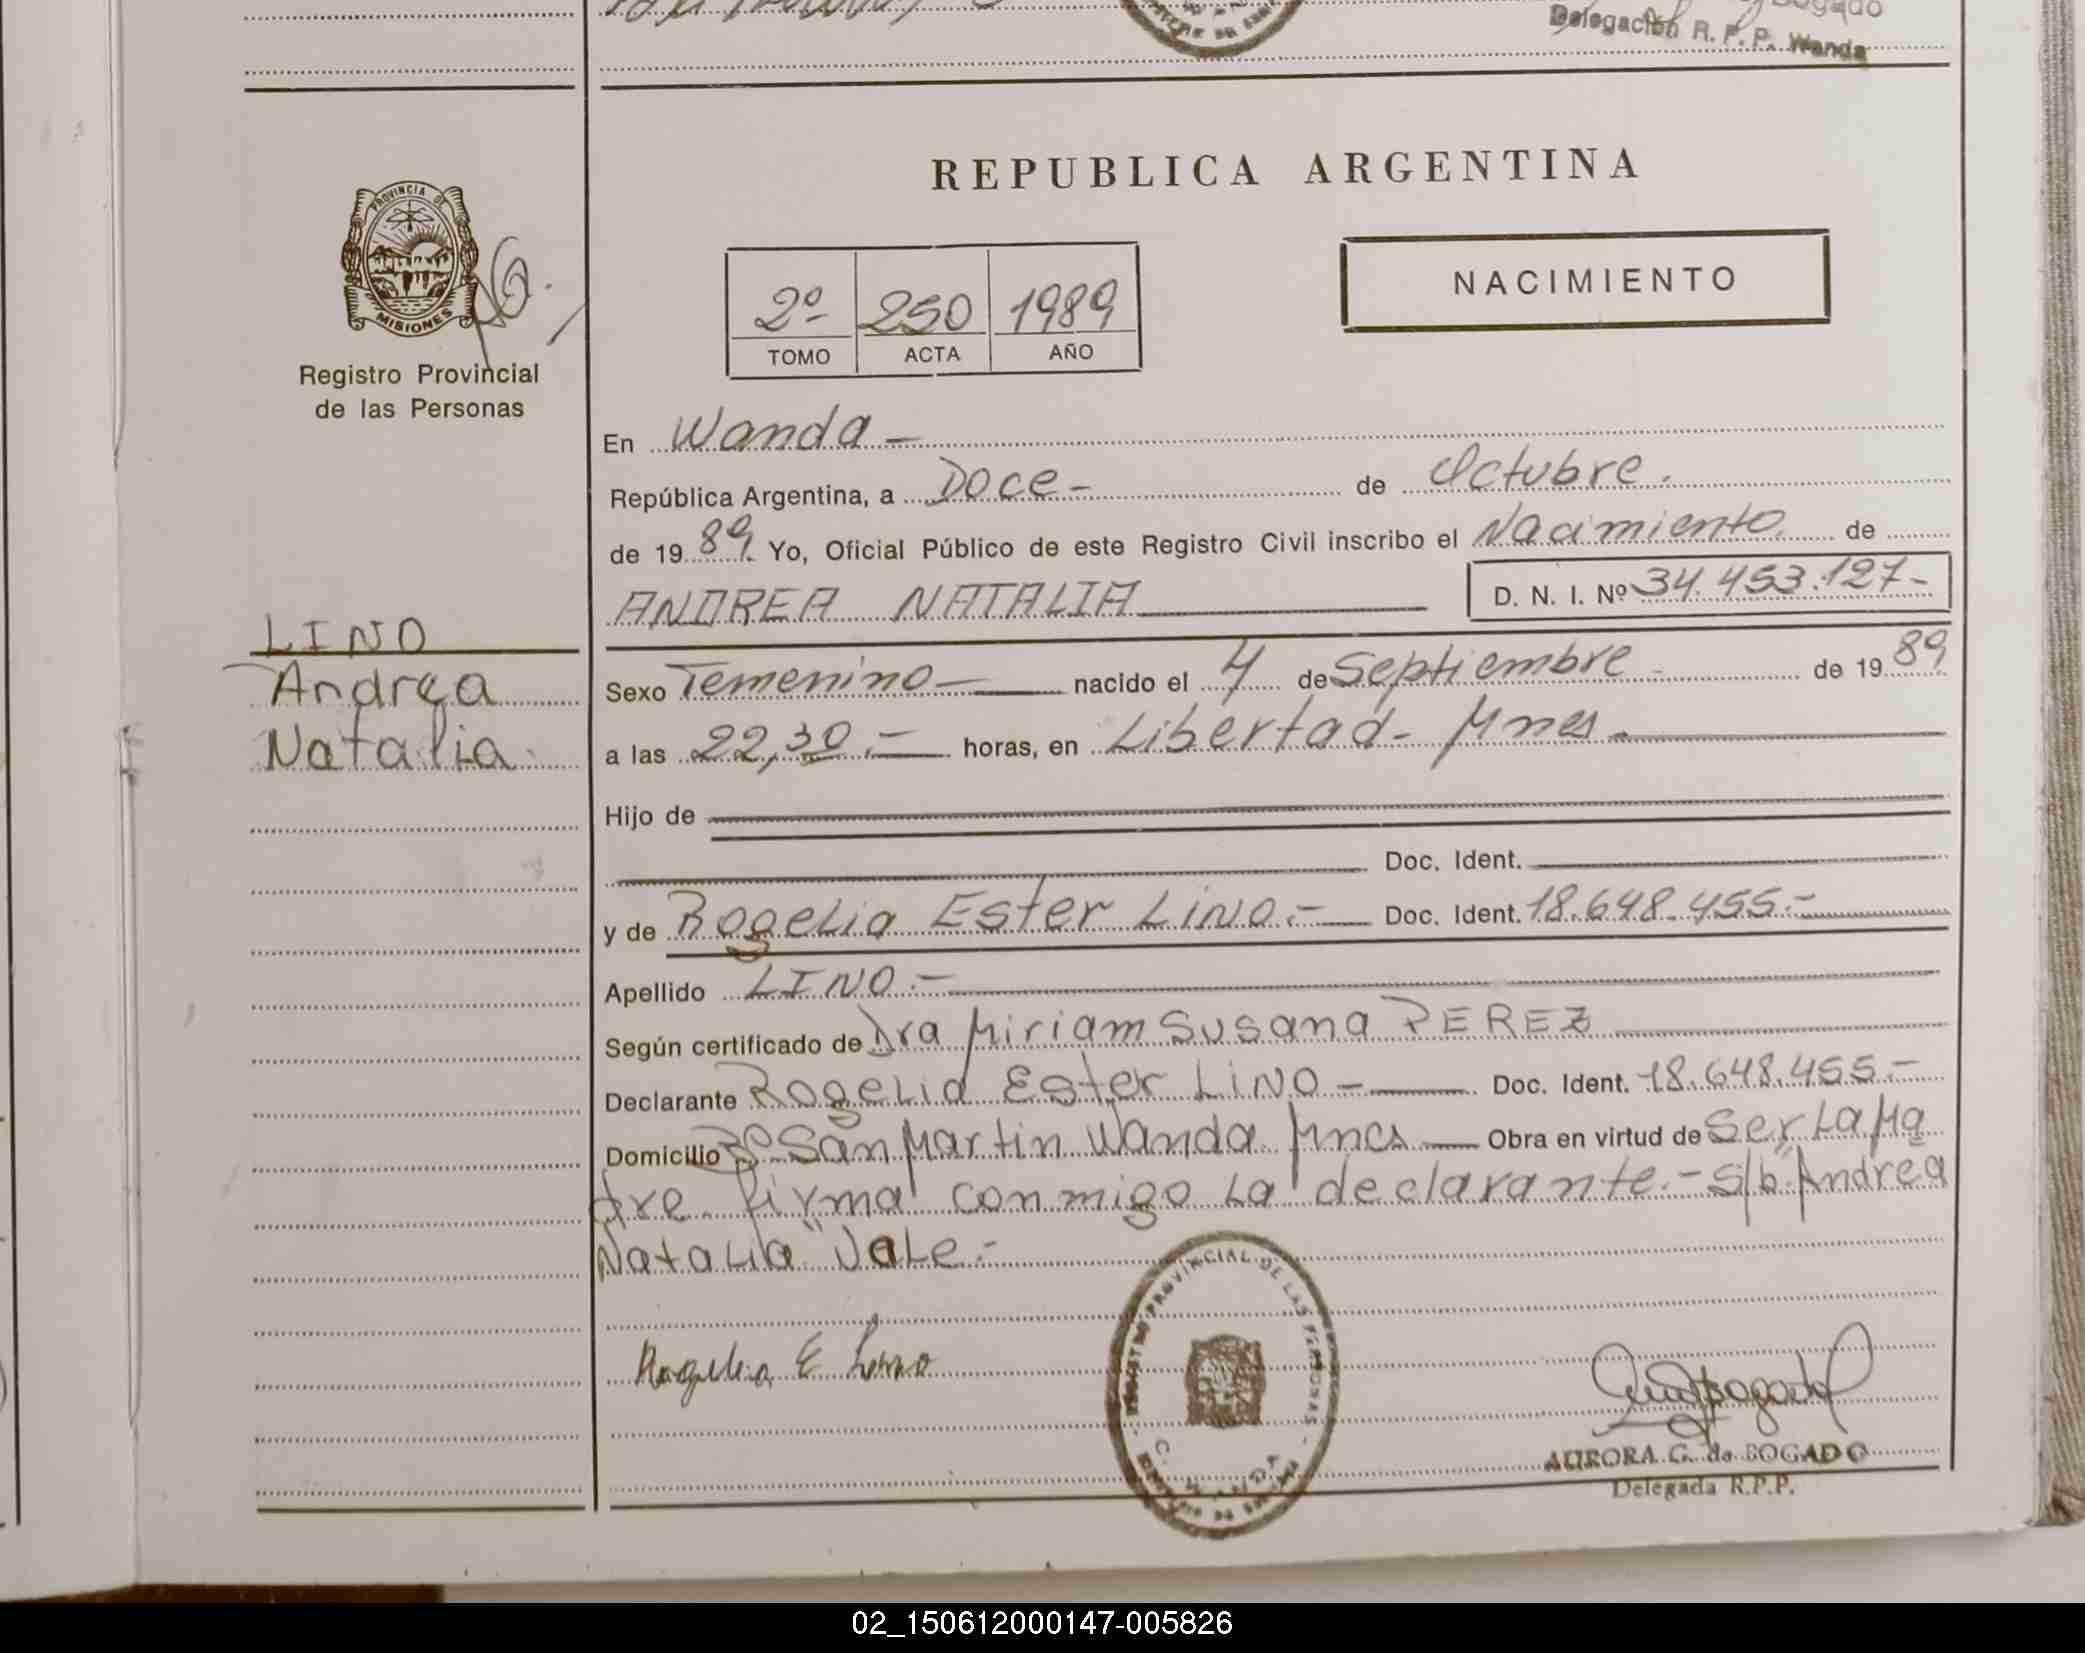 Delegación R. P. P. Wanda
PROVINCIA DE
MISIONES
Registro Provincial
de las Personas
LINO
Andrea
Natalia.
REPUBLICA ARGENTINA
2º 250 1989
TOMO ACTA AÑO
NACIMIENTO
En Wanda -
República Argentina, a Doce - de Octubre.
de 19 89. Yo, Oficial Público de este Registro Civil inscribo el Nacimiento de
ANDREA NATALIA D. N. I. Nº 34.453.127-
Sexo Femenino - nacido el 4 de Septiembre de 19 89
a las 22,30.- horas, en Libertad - Mnes -
Hijo de
Doc. Ident.
y de Rogelia Ester Lino.- Doc. Ident. 18.648.455.-
Apellido LINO.-
Según certificado de Dra Miriam Susana PEREZ
Declarante Rogelia Ester Lino - Doc. Ident. 18.648.455.-
Domicilio Bº San Martin Wanda Mnes - Obra en virtud de Ser La Ma
dre firma conmigo La declarante.- S/b "Andrea
Natalia" Vale.-
Rogelia E Lino
REGISTRO PROVINCIAL DE LAS PERSONAS
AURORA G. de BOGADO
Delegada R.P.P.
02_150612000147-005826